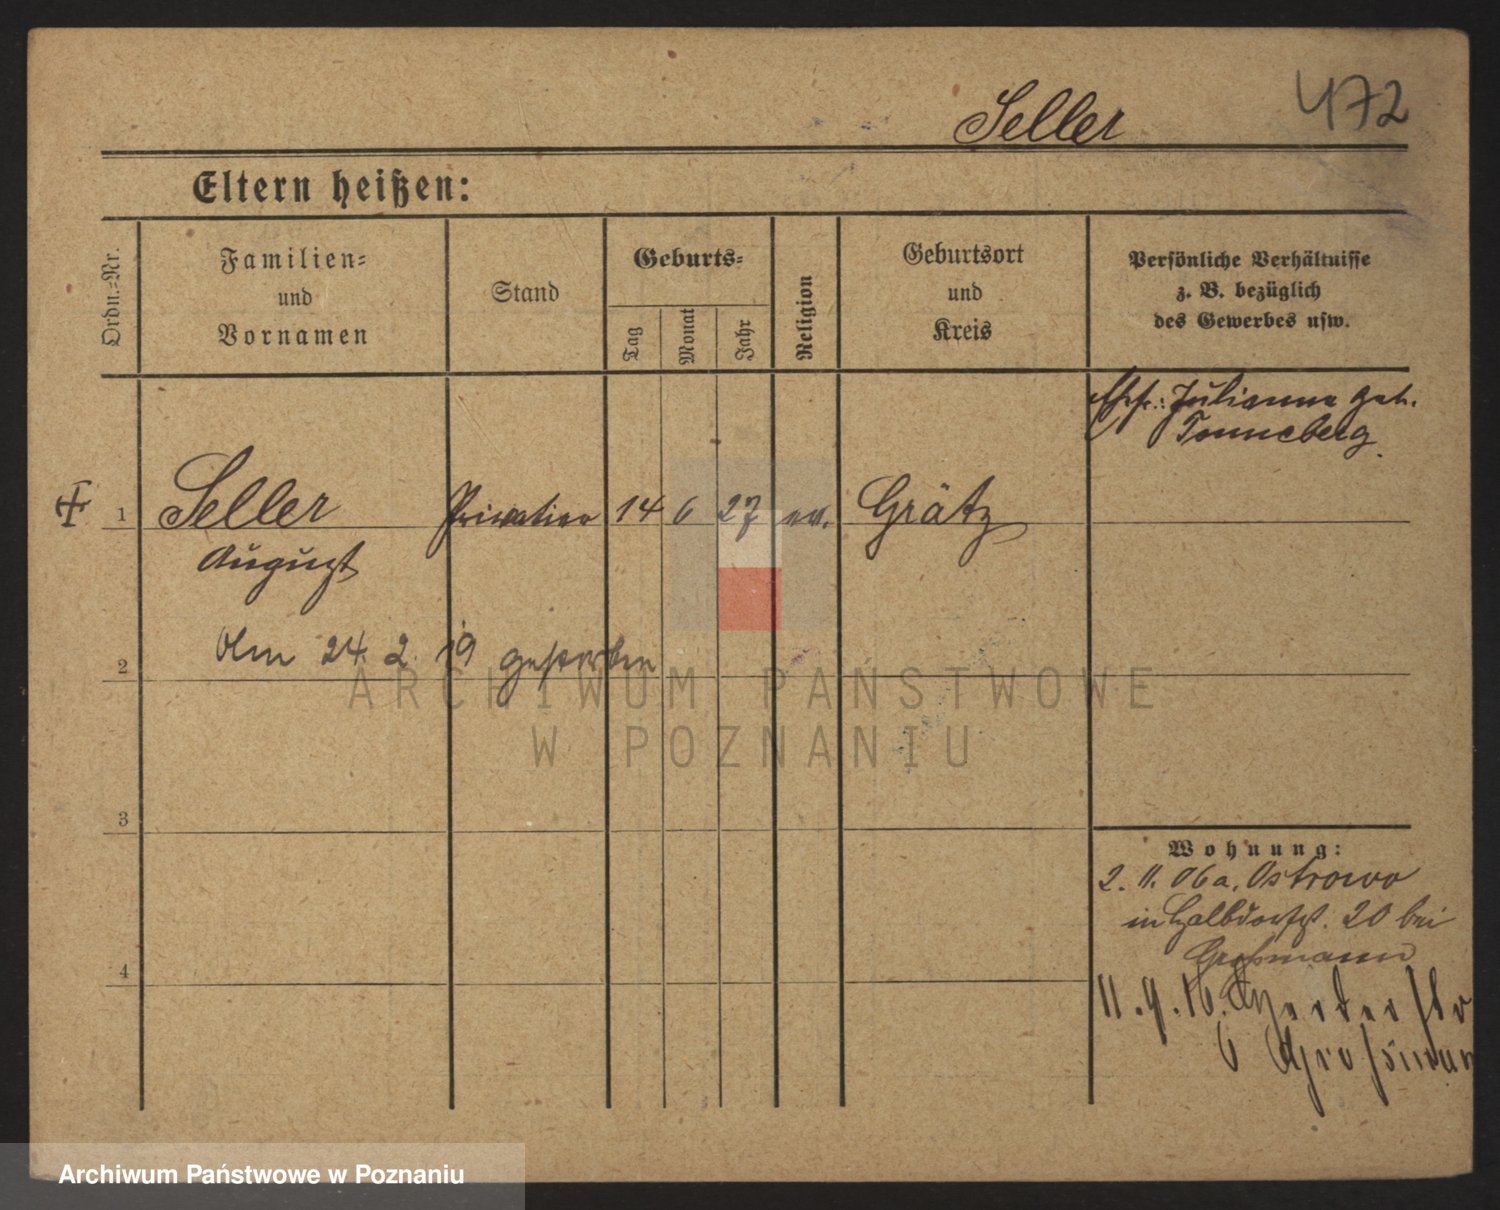 472
Seller
Eltern heißen:
Ordn.-Nr.
Familien-
und
Vornamen
Stand
Geburts-
Tag
Monat
Jahr
Religion
Geburtsort
und
Kreis
Persönliche Verhältnisse
z. B. bezüglich
des Gewerbes usw.
Ehefr.: Julianna geb.
Tonneberg
1 Seller Privatier 14 6 27 ev. Grätz
August
Am 24. 2. 19 gestorben
2
3
4
Wohnung:
2. 11. 06 a. Ostrowo
in Halbdorfst. 20 bei
Großmann
11. 9. 16. Herderstr
6 Großmann
ARCHIWUM PAŃSTWOWE
W POZNANIU
Archiwum Państwowe w Poznaniu